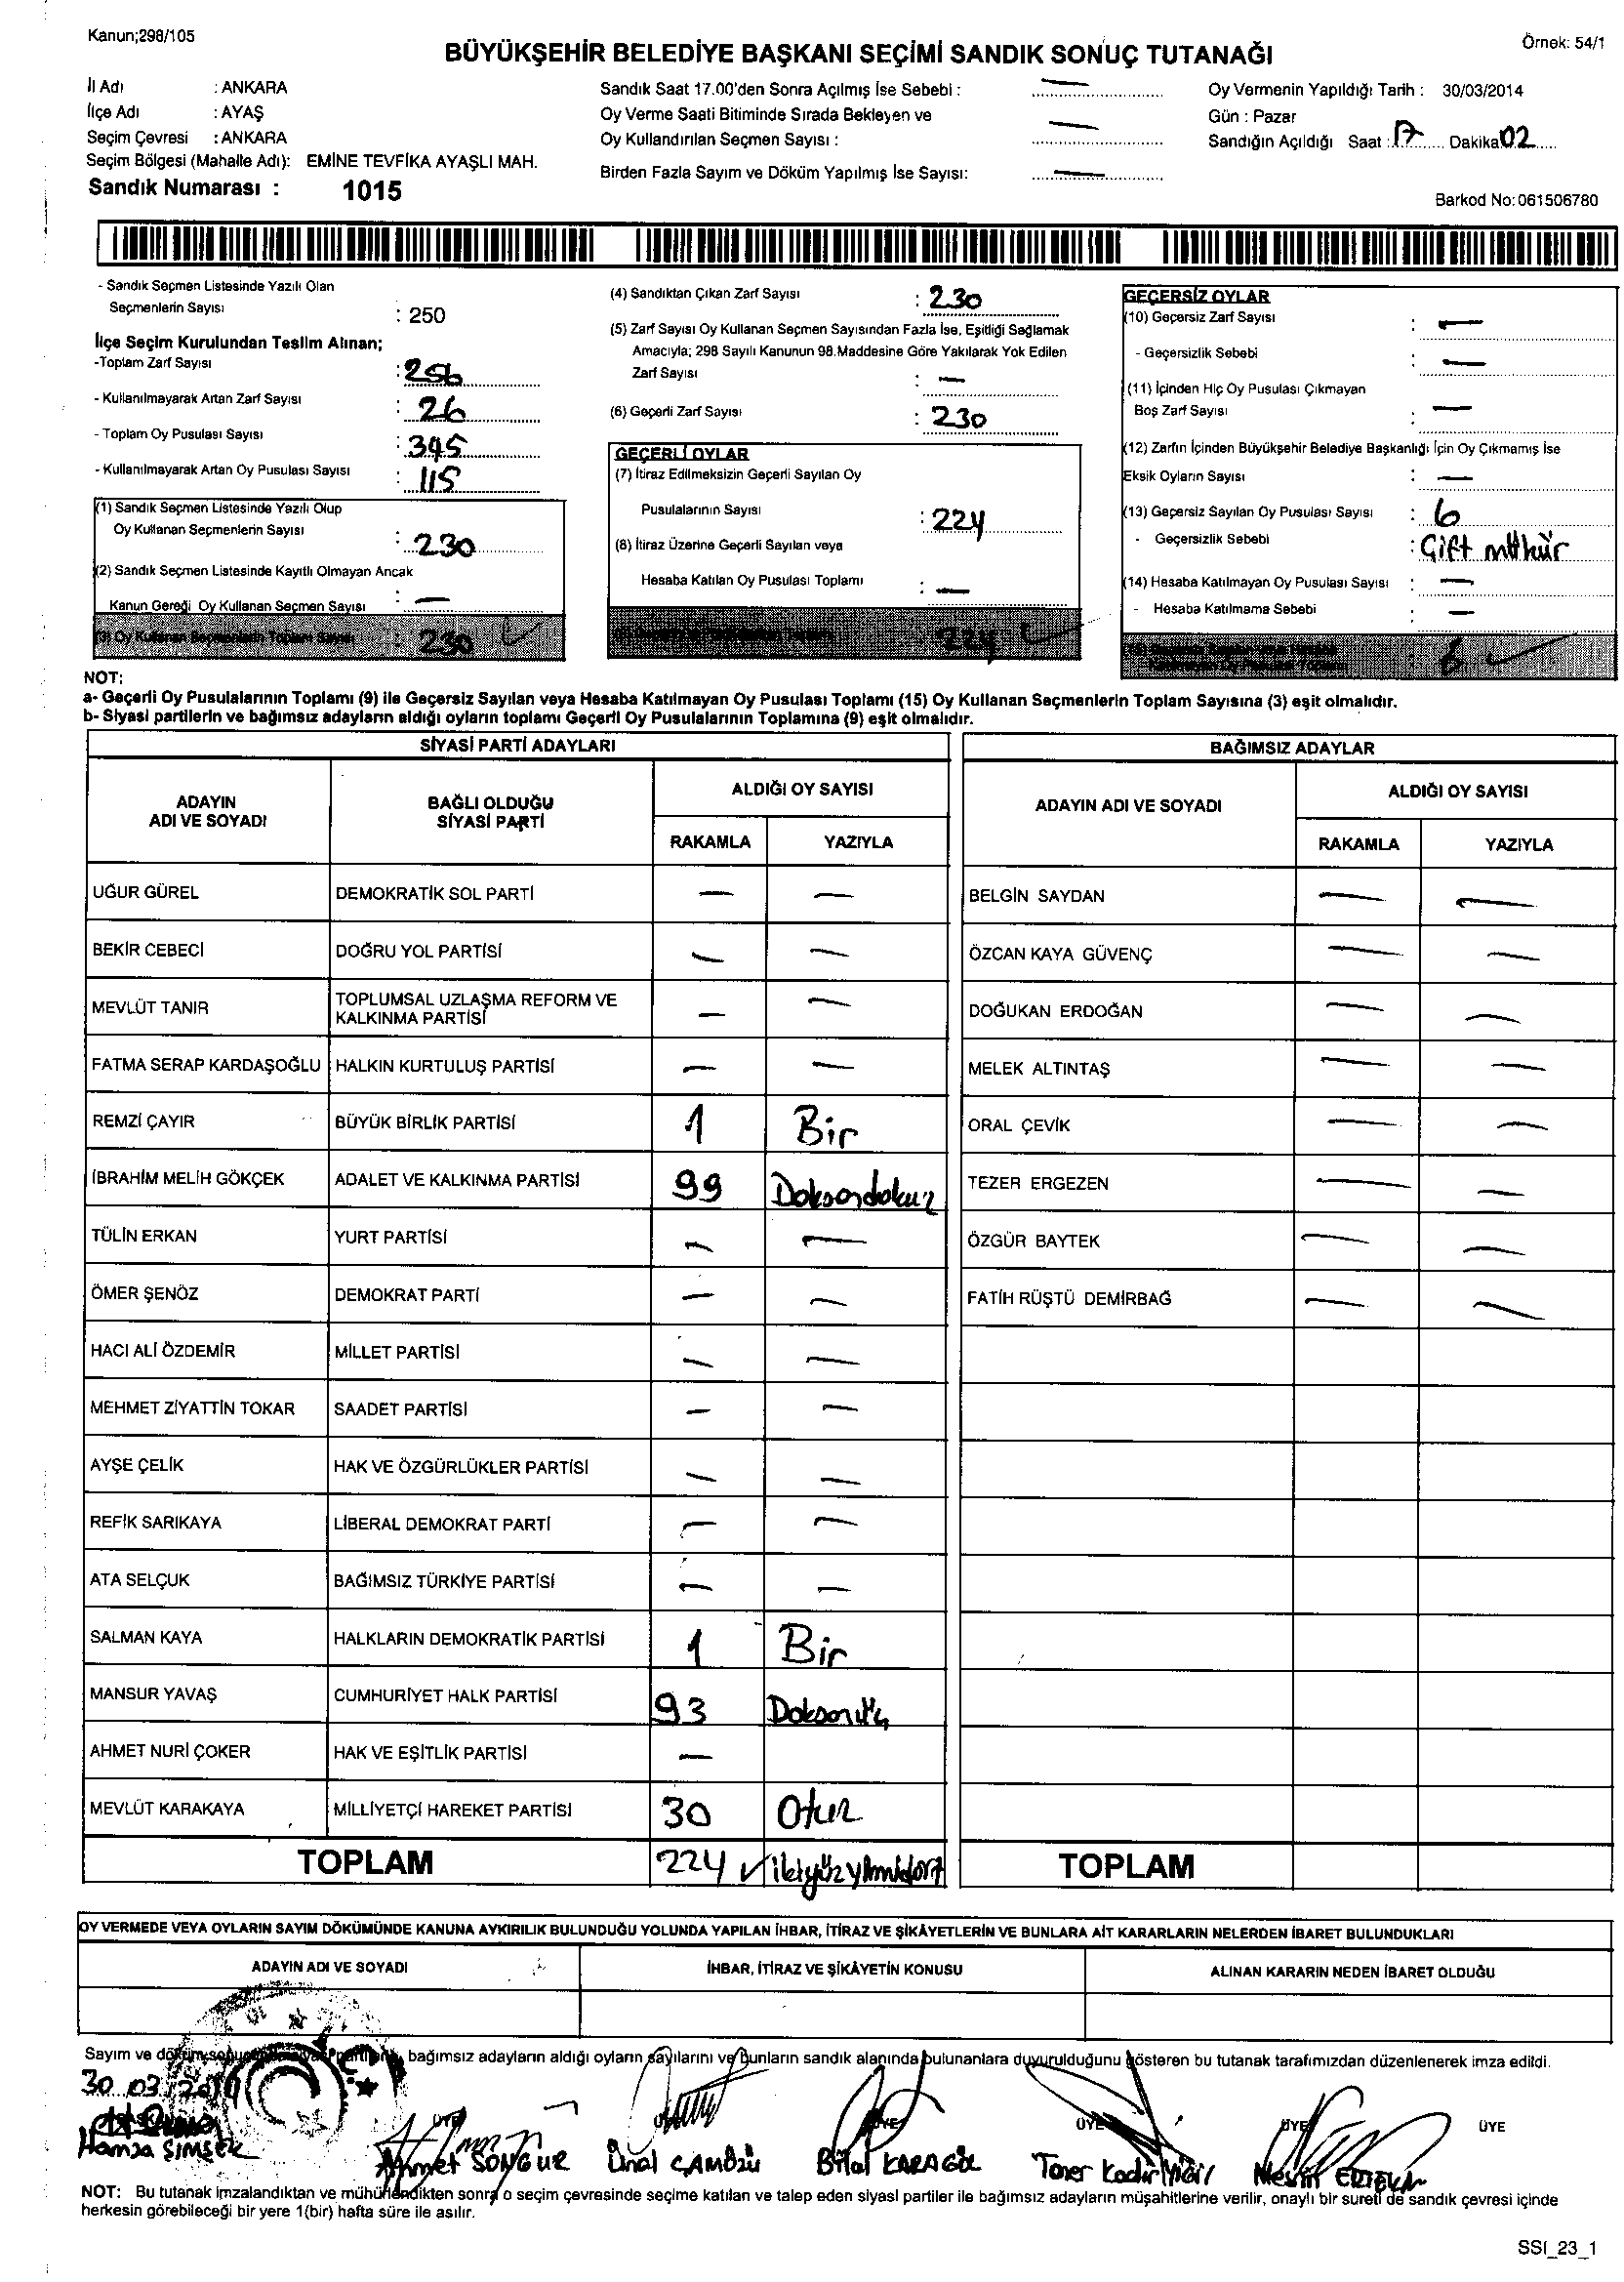 Kanun;298/105
Örnek: 54/1
BÜYÜKŞEHİR BELEDİYE BAŞKANI SEÇİMİ SANDIK SONUÇ TUTANAĞI
İl Adı : ANKARA
İlçe Adı : AYAŞ
Seçim Çevresi : ANKARA
Seçim Bölgesi (Mahalle Adı): EMİNE TEVFİKA AYAŞLI MAH.
Sandık Numarası : 1015
Sandık Saat 17.00'den Sonra Açılmış İse Sebebi : —
Oy Verme Saati Bitiminde Sırada Bekleyen ve
Oy Kullandırılan Seçmen Sayısı : —
Birden Fazla Sayım ve Döküm Yapılmış İse Sayısı: —
Oy Vermenin Yapıldığı Tarih : 30/03/2014
Gün : Pazar
Sandığın Açıldığı Saat : 17 Dakika 02
Barkod No:061506780
- Sandık Seçmen Listesinde Yazılı Olan
Seçmenlerin Sayısı : 250
İlçe Seçim Kurulundan Teslim Alınan;
-Toplam Zarf Sayısı : 256
- Kullanılmayarak Artan Zarf Sayısı : 26
- Toplam Oy Pusulası Sayısı : 345
- Kullanılmayarak Artan Oy Pusulası Sayısı : 115
(1) Sandık Seçmen Listesinde Yazılı Olup
Oy Kullanan Seçmenlerin Sayısı : 230
(2) Sandık Seçmen Listesinde Kayıtlı Olmayan Ancak
Kanun Gereği Oy Kullanan Seçmen Sayısı : —
(3) Oy Kullanan Seçmenlerin Toplam Sayısı : 230
(4) Sandıktan Çıkan Zarf Sayısı : 230
(5) Zarf Sayısı Oy Kullanan Seçmen Sayısından Fazla İse, Eşitliği Sağlamak
Amacıyla; 298 Sayılı Kanunun 98.Maddesine Göre Yakılarak Yok Edilen
Zarf Sayısı : —
(6) Geçerli Zarf Sayısı : 230
GEÇERLİ OYLAR
(7) İtiraz Edilmeksizin Geçerli Sayılan Oy
Pusulalarının Sayısı : 224
(8) İtiraz Üzerine Geçerli Sayılan veya
Hesaba Katılan Oy Pusulası Toplamı : —
224
GEÇERSİZ OYLAR
(10) Geçersiz Zarf Sayısı : —
- Geçersizlik Sebebi : —
(11) İçinden Hiç Oy Pusulası Çıkmayan
Boş Zarf Sayısı : —
(12) Zarfın İçinden Büyükşehir Belediye Başkanlığı İçin Oy Çıkmamış İse
Eksik Oyların Sayısı : —
(13) Geçersiz Sayılan Oy Pusulası Sayısı : 6
- Geçersizlik Sebebi : Çift mühür
(14) Hesaba Katılmayan Oy Pusulası Sayısı : —
- Hesaba Katılmama Sebebi : —
6
NOT:
a- Geçerli Oy Pusulalarının Toplamı (9) ile Geçersiz Sayılan veya Hesaba Katılmayan Oy Pusulası Toplamı (15) Oy Kullanan Seçmenlerin Toplam Sayısına (3) eşit olmalıdır.
b- Siyasi partilerin ve bağımsız adayların aldığı oyların toplamı Geçerli Oy Pusulalarının Toplamına (9) eşit olmalıdır.
SİYASİ PARTİ ADAYLARI
ADAYIN ADI VE SOYADI BAĞLI OLDUĞU SİYASİ PARTİ ALDIĞI OY SAYISI
RAKAMLA YAZIYLA
UĞUR GÜREL DEMOKRATİK SOL PARTİ — —
BEKİR CEBECİ DOĞRU YOL PARTİSİ — —
MEVLÜT TANIR TOPLUMSAL UZLAŞMA REFORM VE KALKINMA PARTİSİ — —
FATMA SERAP KARDAŞOĞLU HALKIN KURTULUŞ PARTİSİ — —
REMZİ ÇAYIR BÜYÜK BİRLİK PARTİSİ 1 Bir
İBRAHİM MELİH GÖKÇEK ADALET VE KALKINMA PARTİSİ 99 Doksandokuz
TÜLİN ERKAN YURT PARTİSİ — —
ÖMER ŞENÖZ DEMOKRAT PARTİ — —
HACI ALİ ÖZDEMİR MİLLET PARTİSİ — —
MEHMET ZİYATTİN TOKAR SAADET PARTİSİ — —
AYŞE ÇELİK HAK VE ÖZGÜRLÜKLER PARTİSİ — —
REFİK SARIKAYA LİBERAL DEMOKRAT PARTİ — —
ATA SELÇUK BAĞIMSIZ TÜRKİYE PARTİSİ — —
SALMAN KAYA HALKLARIN DEMOKRATİK PARTİSİ 1 Bir
MANSUR YAVAŞ CUMHURİYET HALK PARTİSİ 93 Doksanüç
AHMET NURİ ÇOKER HAK VE EŞİTLİK PARTİSİ —
MEVLÜT KARAKAYA MİLLİYETÇİ HAREKET PARTİSİ 30 Otuz
TOPLAM 224 ikiyüzyirmidört
BAĞIMSIZ ADAYLAR
ADAYIN ADI VE SOYADI ALDIĞI OY SAYISI
RAKAMLA YAZIYLA
BELGİN SAYDAN — —
ÖZCAN KAYA GÜVENÇ — —
DOĞUKAN ERDOĞAN — —
MELEK ALTINTAŞ — —
ORAL ÇEVİK — —
TEZER ERGEZEN — —
ÖZGÜR BAYTEK — —
FATİH RÜŞTÜ DEMİRBAĞ — —
TOPLAM
OY VERMEDE VEYA OYLARIN SAYIM DÖKÜMÜNDE KANUNA AYKIRILIK BULUNDUĞU YOLUNDA YAPILAN İHBAR, İTİRAZ VE ŞİKÂYETLERİN VE BUNLARA AİT KARARLARIN NELERDEN İBARET BULUNDUKLARI
ADAYIN ADI VE SOYADI İHBAR, İTİRAZ VE ŞİKÂYETİN KONUSU ALINAN KARARIN NEDEN İBARET OLDUĞU
Sayım ve bağımsız adayların aldığı oyların sayılarını ve bunların sandık alanında bulunanlara duyurulduğunu gösteren bu tutanak tarafımızdan düzenlenerek imza edildi.
30 03 2014
ÜYE ÜYE ÜYE ÜYE ÜYE
Hamza ŞİMŞEK Ahmet SONGUR Ünal ÇAMÖZÜ Bilal KARAGÖL Taner Kadir
NOT: Bu tutanak imzalandıktan ve mühürlendikten sonra o seçim çevresinde seçime katılan ve talep eden siyasi partiler ile bağımsız adayların müşahitlerine verilir, onaylı bir sureti de sandık çevresi içinde
herkesin görebileceği bir yere 1(bir) hafta süre ile asılır.
SSI_23_1